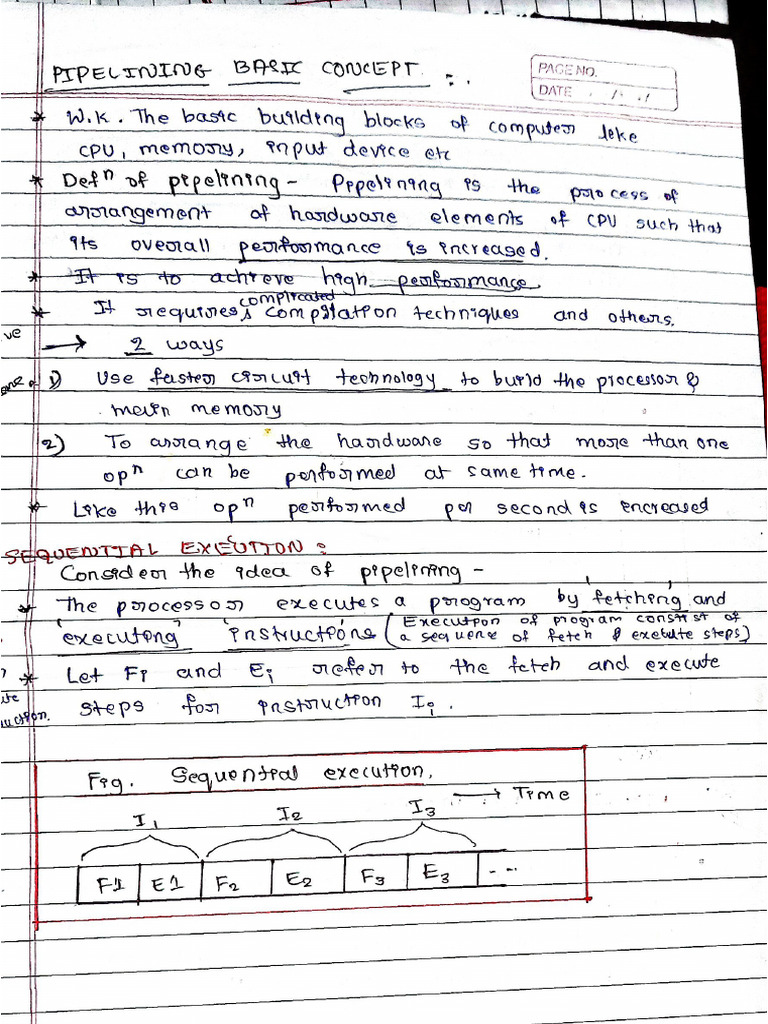 PIPELINING BASIC CONCEPT :.
PAGE NO.
DATE / /
* W.K. The basic building blocks of computer like
CPU, memory, input device etc
* Defⁿ of pipelining - Pipelining is the process of
arrangement of hardware elements of CPU such that
its overall performance is increased.
* It is to achieve high performance
* It requires complicated compilation techniques and others.
ve
→ 2 ways
1) Use faster circuit technology to build the processor &
main memory
2) To arrange the hardware so that more than one
opⁿ can be performed at same time.
* Like this opⁿ performed per second is increased
SEQUENTIAL EXEUTION :
Consider the idea of pipelining -
* The processor executes a program by 'fetching' and
'executing' instructions (Execution of program consist of
a sequence of fetch & execute steps)
* Let Fi and Ei refer to the fetch and execute
steps for instruction Ii.
uction.
Fig. Sequential execution.
→ Time
I1 I2 I3
F1 E1 F2 E2 F3 E3 --